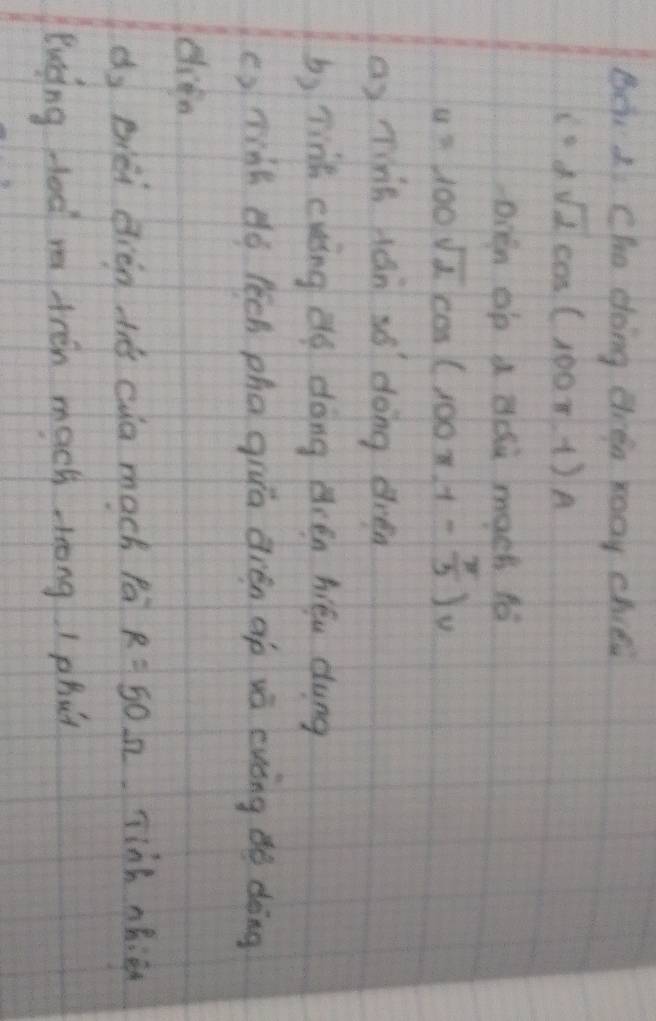 Bài 2: Cho dòng điện xoay chiều
i = 2√2 cos (100π.t) A
Điện áp 2 đầu mạch là
u = 100√2 cos (100π.t - π/3) V
a) Tính tần số dòng điện
b) Tính cường độ dòng điện hiệu dụng
c) Tính độ lệch pha giữa điện áp và cường độ dòng
điện
d) Biết điện trở của mạch là R = 50 Ω. Tính nhiệt
lượng toả ra trên mạch trong 1 phút